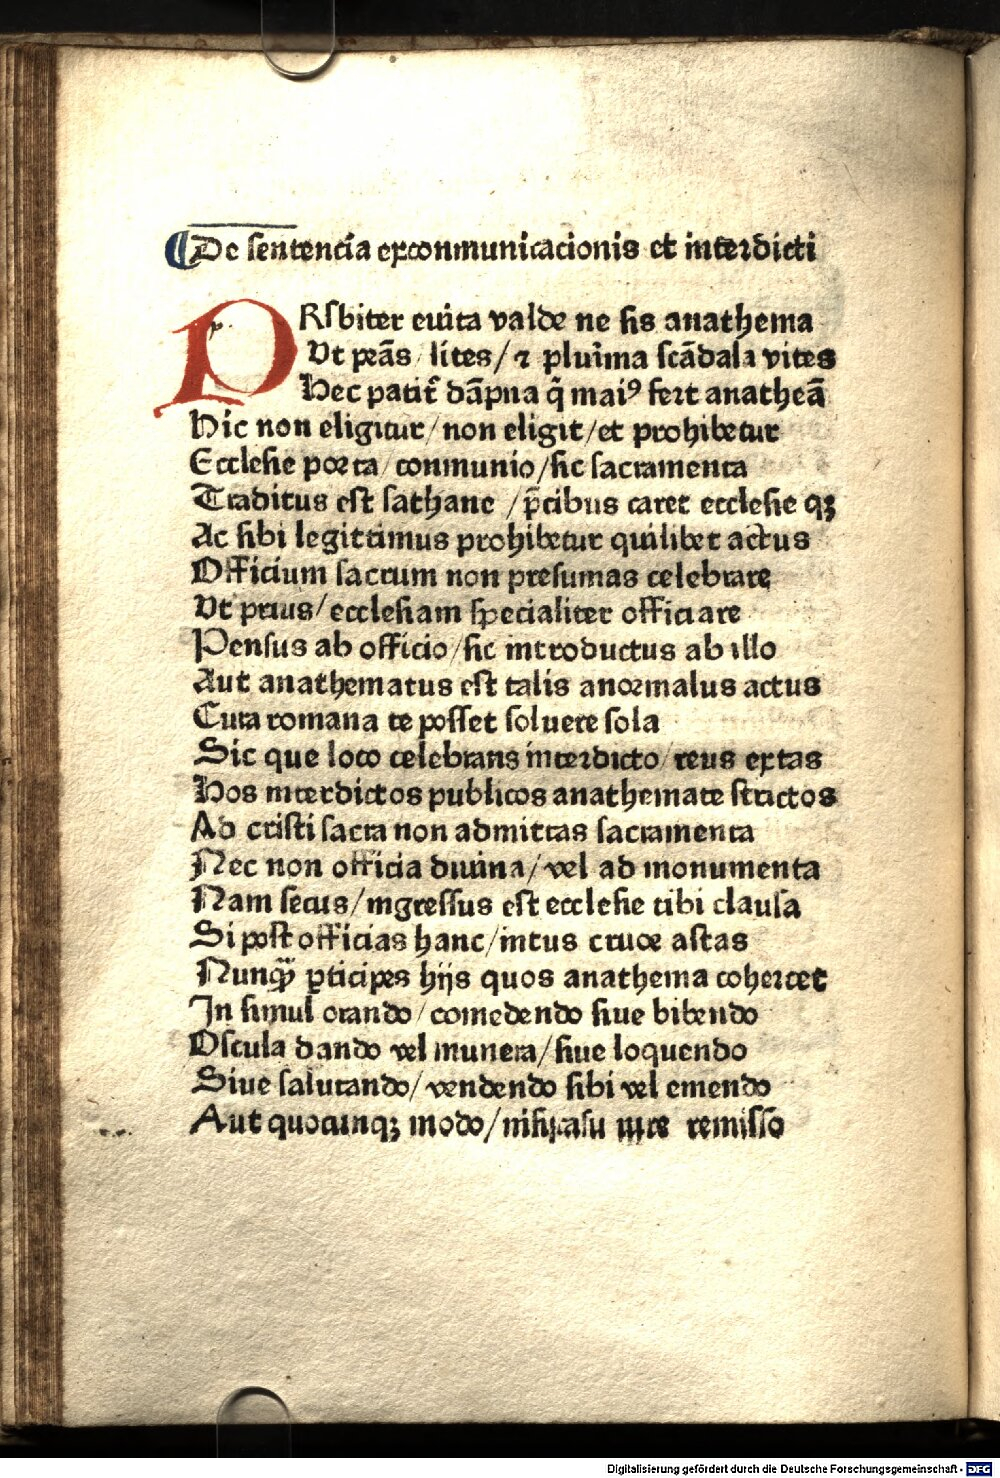 De sentencia exconmunicacionis et interdicti
PRſbiter euita valde ne ſis anathema
Vt peās lites/ ⁊ pluīma ſcādala vites
Hec patiť dāpna q̄ maiꝰ fert anatheā
Hic non eligitur/non eligit/et prohibetur
Eccleſie porta/conmunio/ſic ſacramenta
Traditus eſt ſathane /p̄cibus caret eccleſie qꝫ
Ac ſibi legittimus prohibetur quilibet actus
Officium ſacrum non preſumas celebrare
Vt prius/eccleſiam ſpecialiter officiare
Penſus ab officio/ſic introductus ab illo
Aut anathematus eſt talis anormalus actus
Cura romana te poſſet ſoluere ſola
Sic que loco celebrans interdicto/reus extas
Hos interdictos publicos anathemate ſtrictos
Ad criſti ſacra non admittas ſacramenta
Nec non officia diuina/vel ad monumenta
Nam ſecus/ingreſſus eſt eccleſie tibi clauſa
Si poſt officias hanc/intus cruce aſtas
Nunq̄ꝫ ꝑticipes hijs quos anathema cohercet
In ſimul orando/comedendo ſiue bibendo
Oſcula dando vel munera/ſiue loquendo
Siue ſalutando/vendendo ſibi vel emendo
Aut quocunqꝫ modo/niſi caſu iure remiſſo
Digitalisierung gefördert durch die Deutsche Forschungsgemeinschaft - DFG